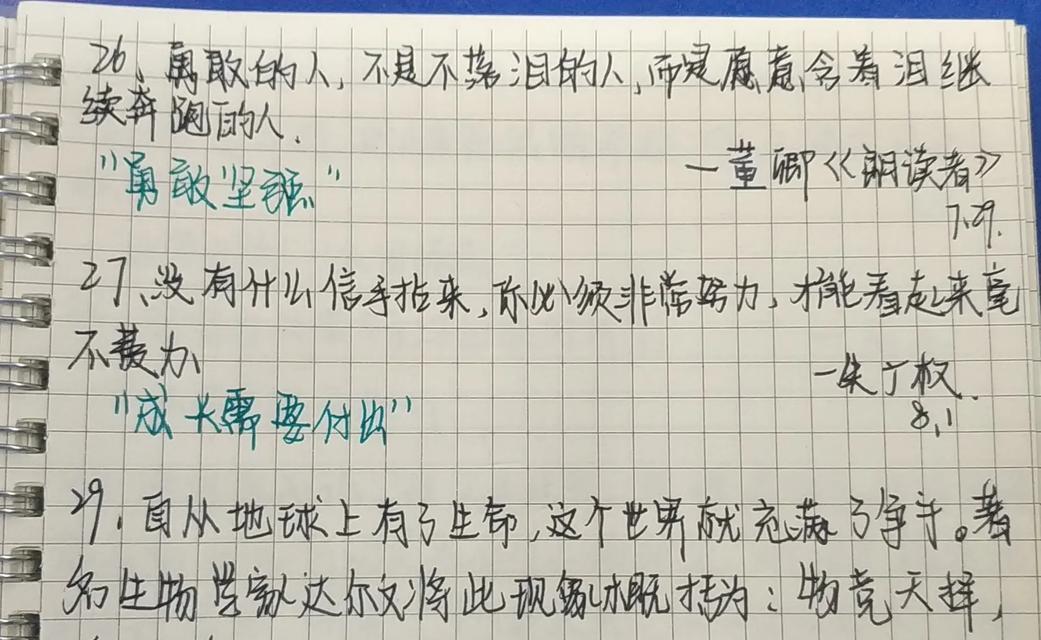 26、勇敢的人，不是不落泪的人，而是愿意含着泪继
续奔跑的人.
"勇敢坚强"
—董卿《朗读者》
7.29.
27、没有什么信手拈来，你必须非常努力，才能看起来毫
不费力、
—朱丁权.
8.1
"成长需要付出"
29、自从地球上有了生命，这个世界就充满了争斗。著
名生物学家达尔文将此现象概括为：物竞天择，